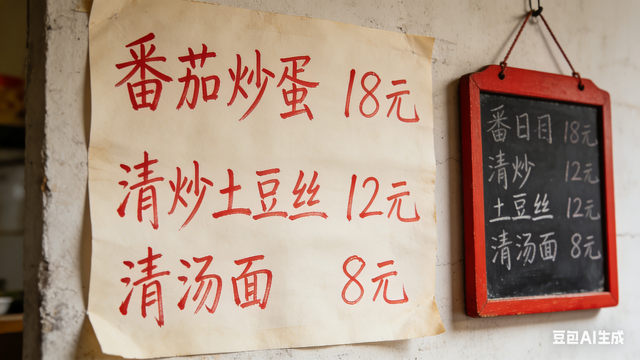 番茄炒蛋 18元
清炒土豆丝 12元
清汤面 8元
番日目 18元
清炒 12元
土豆丝 12元
清汤面 8元
豆包AI生成